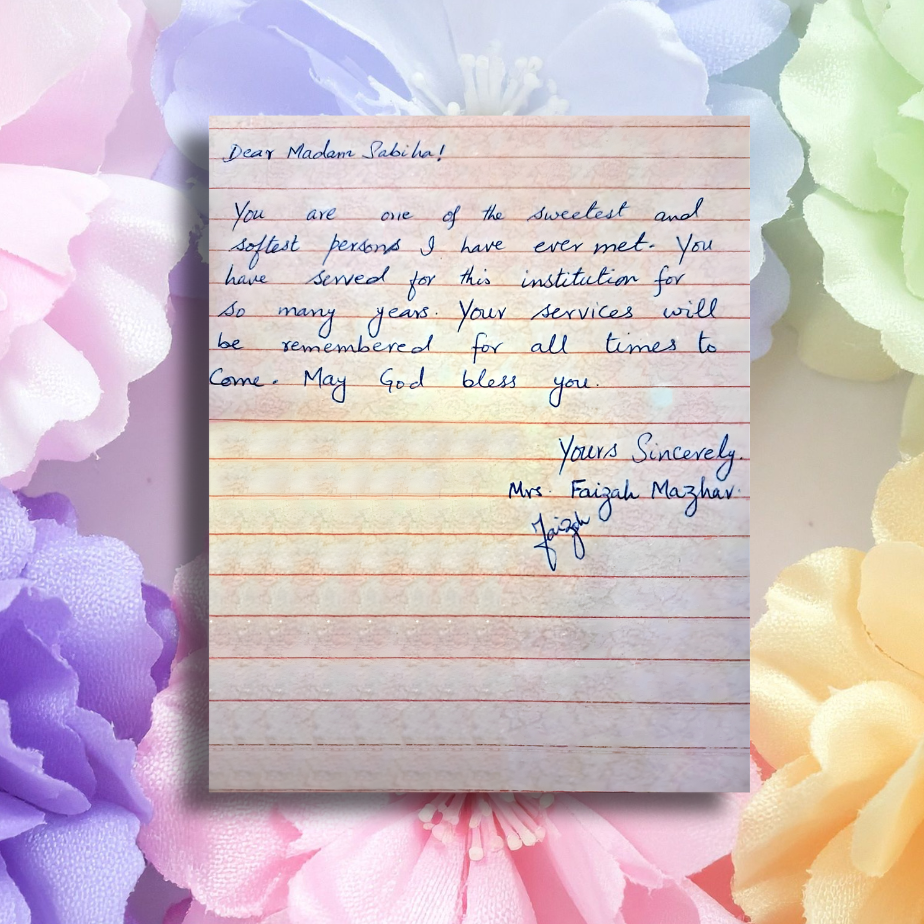 Dear Madam Sabiha!
You are one of the sweetest and
softest persons I have ever met. You
have served for this institution for
so many years. Your services will
be remembered for all times to
Come. May God bless you.
Yours Sincerely.
Mrs. Faizah Mazhar.
Faizah